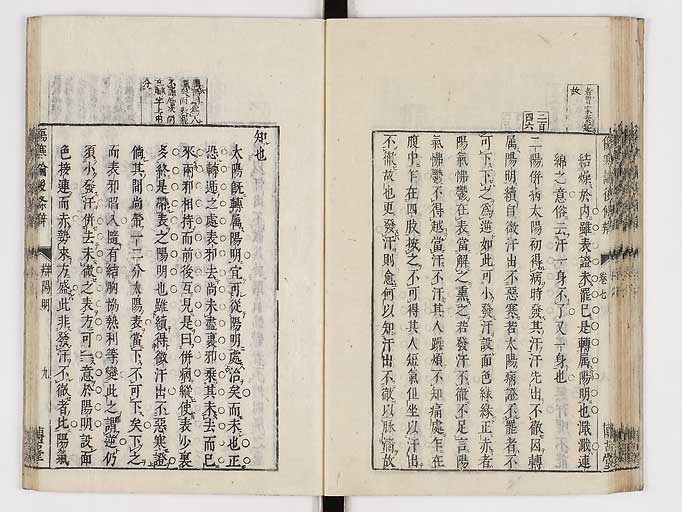 者胃家㝡是
故
結燥於内雖表證未罷已是轉属陽明也濈濈連
綿之意俗云汗一身不了又一身也
二百
四六
二陽併病太陽初得病時發其汗汗先出不徹因轉
属陽明續自微汗出不惡寒者太陽病證不罷者不
可下下之爲逆如此可小發汗設面色緣緣正赤者
陽氣怫鬱在表當解之熏之若發汗不徹不足言陽
氣怫鬱不得越當汗不汗其人躁煩不知痛處乍在
腹中乍在四肢按之不可得其人短氣但坐以汗出
不徹故也更發汗則愈何以知汗出不徹以脉濇故
知也
太陽旣轉属陽明宜可從陽明處治矣而未也正
恐轉逓之處表邪去尚未盡裏邪乗其未去而已
來兩邪相持而前後互見是曰併病縱使表少裏
多終是帶表之陽明也雖續得微汗出不惡寒證
倘其間尚帶一二分太陽表當下不可下矣下之
而表邪陷入隨有結胸協熱利等變此之謂逆仍
須小發汗併去未徹之表方可一意於陽明設面
色接連而赤勢來方盛此非發汗不徹者比陽氣
辨陽明
九
卷七